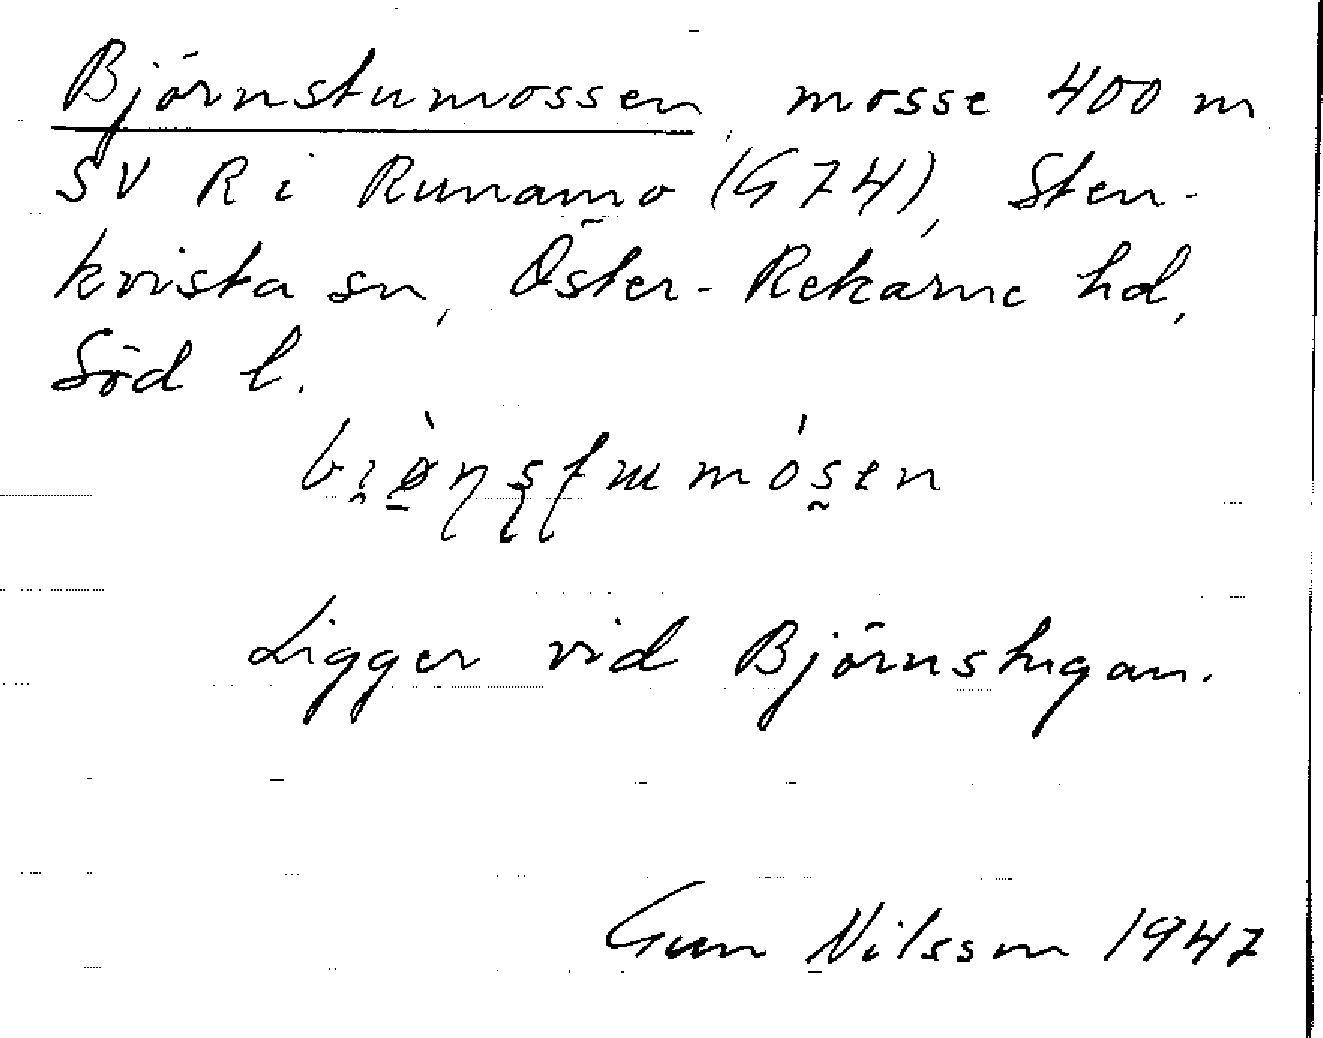 Björnstumossen, mosse 400 m
SV R i Runamo (G 74), Sten-
kvista sn, Öster-Rekarne hd,
Söd l.
Ligger vid Björnstugan.
Gun Nilsson 1947